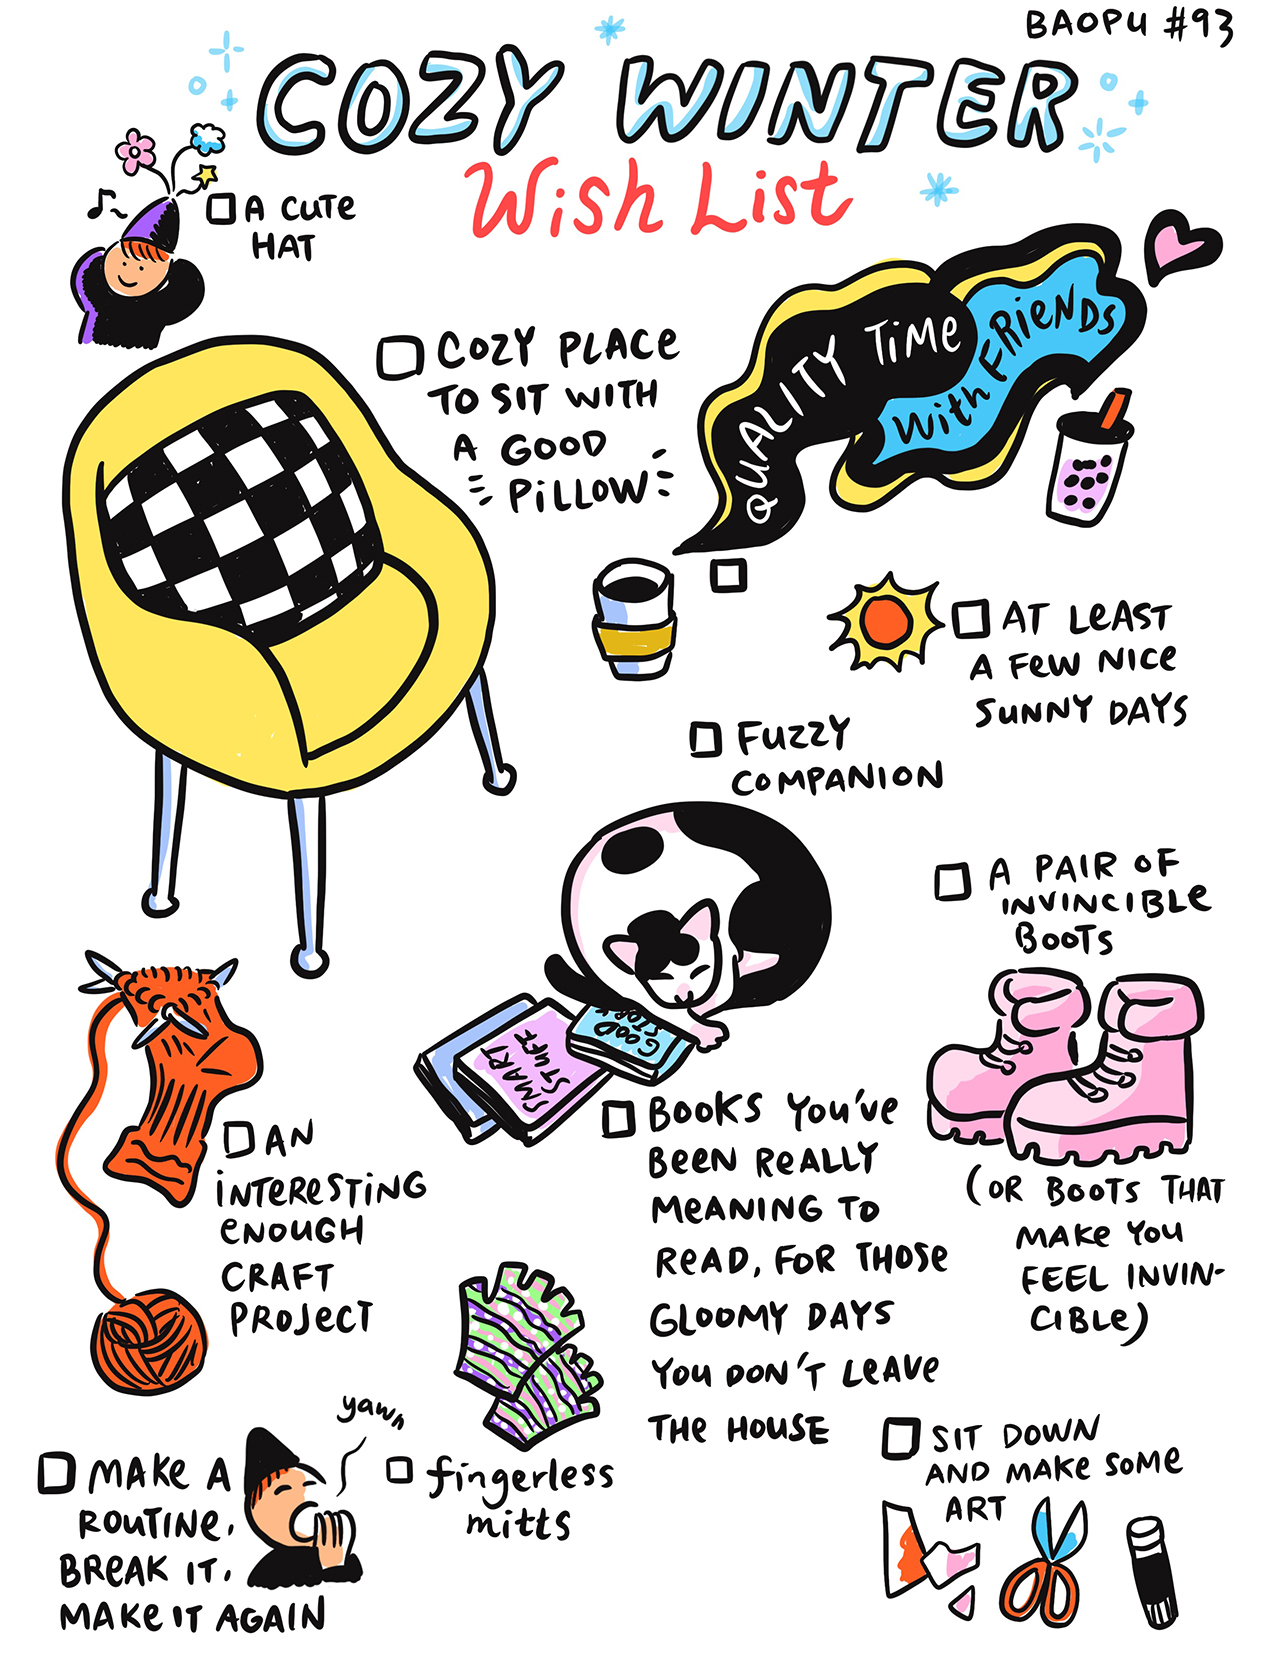 BAOPU #93
COZY WINTER
Wish List
A CUTE
HAT
COZY PLACE
TO SIT WITH
A GOOD
PILLOW
QUALITY TIME
With FRIENDS
AT LEAST
A FEW NICE
SUNNY DAYS
FUZZY
COMPANION
A PAIR OF
INVINCIBLE
BOOTS
(OR BOOTS THAT
MAKE YOU
FEEL INVIN-
CIBLE)
GOOD
STORY
SMART
STUFF
BOOKS YOU'VE
BEEN REALLY
MEANING TO
READ, FOR THOSE
GLOOMY DAYS
YOU DON'T LEAVE
THE HOUSE
AN
INTERESTING
ENOUGH
CRAFT
PROJECT
yawn
MAKE A
ROUTINE,
BREAK IT,
MAKE IT AGAIN
fingerless
mitts
SIT DOWN
AND MAKE SOME
ART